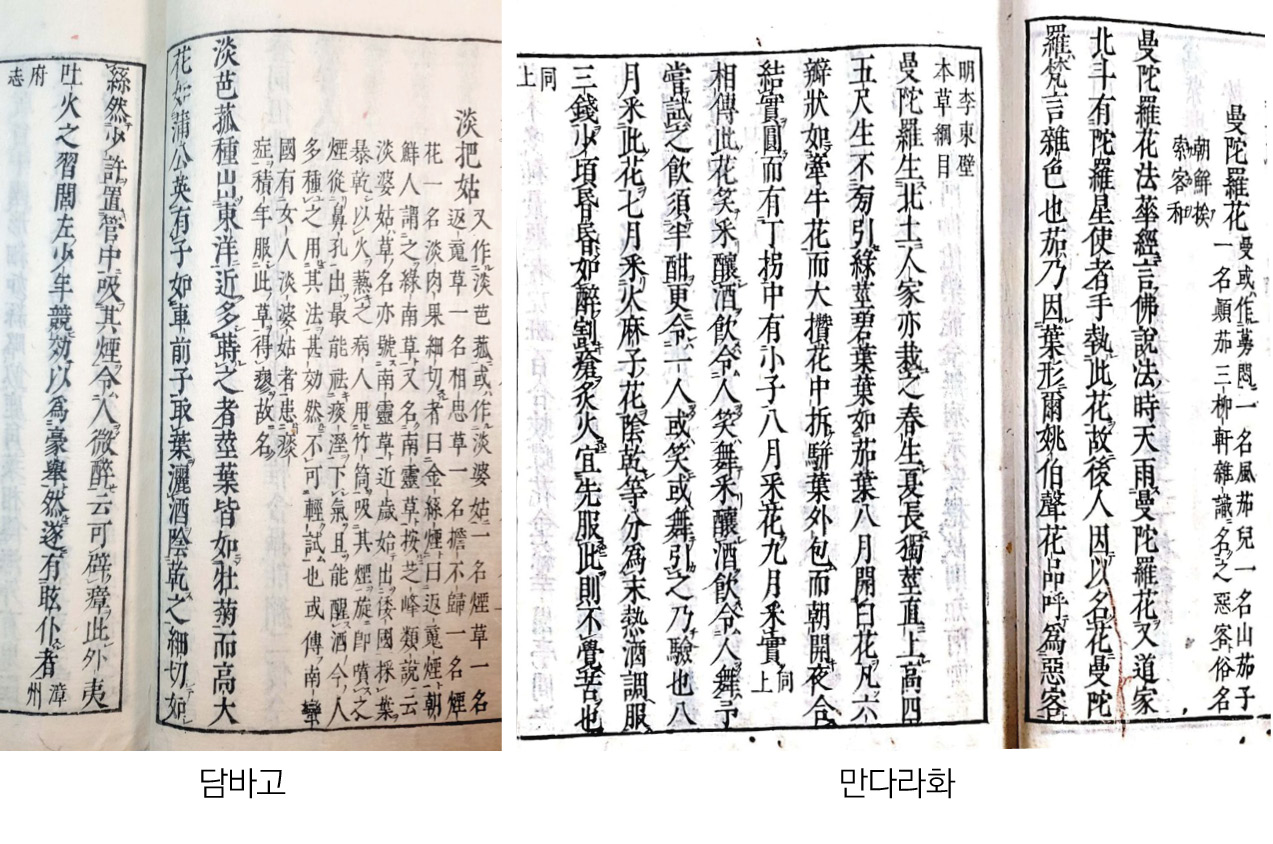 淡把姑
又作淡芭菰或作淡婆姑一名煙草一名
返䰟草一名相思草一名擔不歸一名煙
花一名淡肉果細切者曰金絲煙曰返䰟煙朝
鮮人謂之綠南草又名南靈草按芝峰類說云
淡婆姑草名亦號南靈草近歲始出倭國採葉
暴乾以火爇之病人用竹筒吸其煙旋卽噴之
煙從鼻孔出最能祛痰溼下氣且能醒酒今人
多種之用其法甚効然不可輕試也或傳南蠻
國有女人淡婆姑者患痰
症積年服此草得瘳故名
淡芭菰種出東洋近多蒔之者莖葉皆如牡菊而高大
花如蒲公英有子如車前子取葉灑酒陰乾之細切如
絲然少許置管中吸其煙令人微醉云可辟瘴此外夷
吐火之習閩左少年競効以爲豪舉然遂有眩仆者 漳州
府志
담바고
曼陀羅花
曼或作蔓悶一名風茄兒一名山茄子
一名顛茄三柳軒雜識名之惡客俗名
朝鮮挨
索客和
曼陀羅花法華經言佛說法時天雨曼陀羅花又道家
北斗有陀羅星使者手執此花故後人因以名花曼陀
羅梵言雜色也茄乃因葉形爾姚伯聲花品呼爲惡客
明李東壁
本草綱目
曼陀羅生北土人家亦栽之春生夏長獨莖直上高四
五尺生不旁引綠莖碧葉葉如茄葉八月開白花凡六
瓣狀如牽牛花而大攢花中拆駢葉外包而朝開夜合
結實圓而有丁拐中有小子八月釆花九月釆實 同上
相傳此花笑釆釀酒飲令人笑舞釆釀酒飲令人舞予
嘗試之飲須半酣更令一人或笑或舞引之乃驗也八
月釆此花七月釆火麻子花陰乾等分為末熱酒調服
三錢少頃昏昏如醉割瘡炙火宜先服此則不覺苦也
同上
만다라화